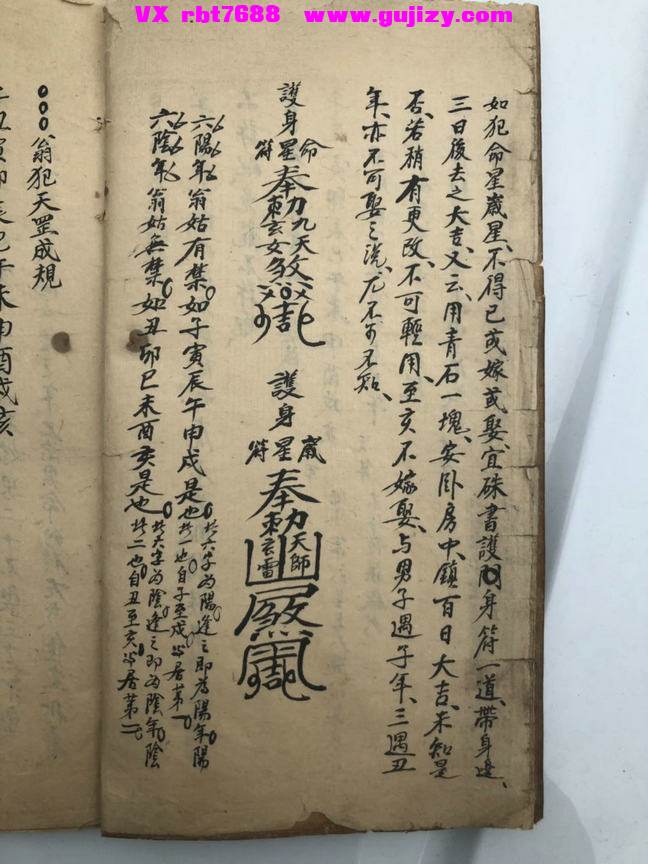 VX rbt7688 www.gujizy.com
如犯命星嵗星、不得已或嫁或娶、宜硃書護身符一道、帶身邊、
三日後去之大吉、又云、用青石一塊、安卧房中、鎮百日大吉、未知是
否、若稍有更改、不可輕用、至亥不嫁娶、与男子遇子年、三遇丑
年、亦不可娶之説、尤不可不知、
護身
命星符
奉勅九天玄女煞
護身
嵗星符
奉勅天師玄雷
六陽年翁姑有禁、如子寅辰午申戌是也
此六字為陽逢之即為陽年陽
此一也自子至戌必居第一
六陰年翁姑無禁、如丑卯巳未酉亥是也
此六字為陰逢之即為陰年陰
此二也自丑至亥必居第二
翁犯天罡成規
子丑寅卯辰巳午未申酉戌亥